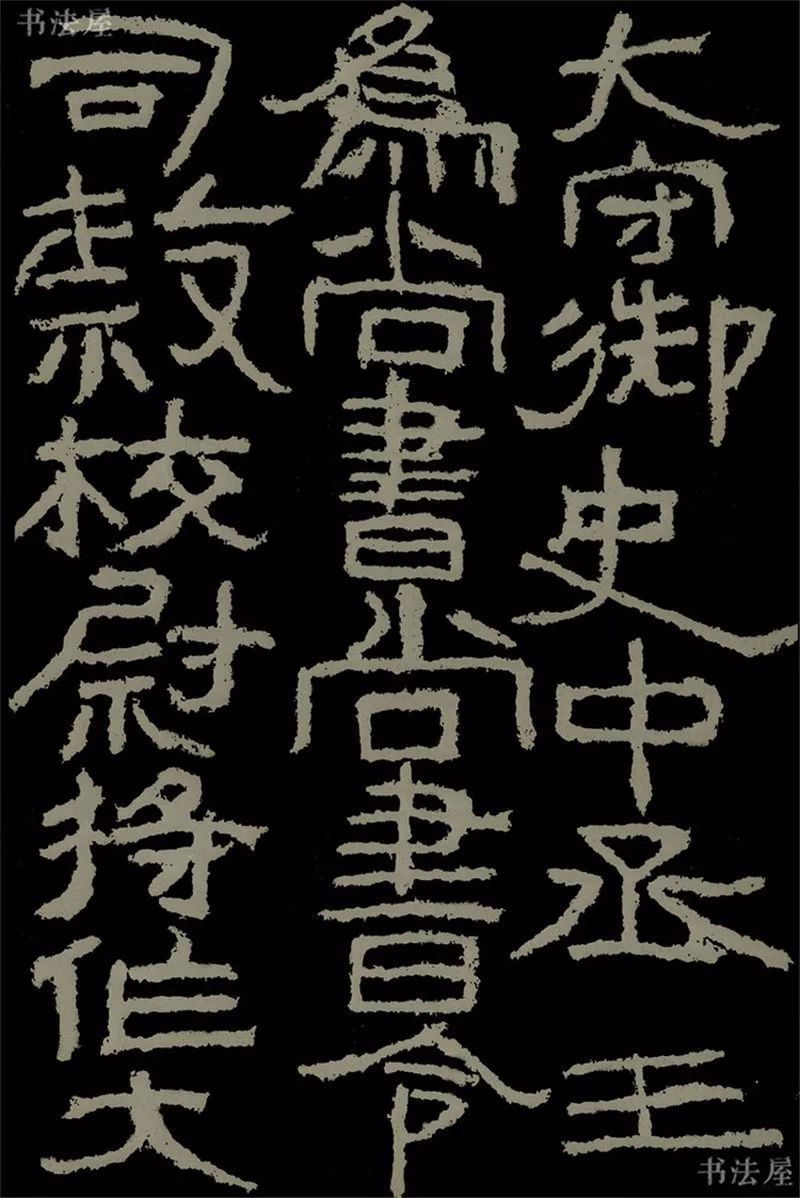 书法屋
大守御史中丞王
為尚書尚書令
司隸校尉將作大
书法屋